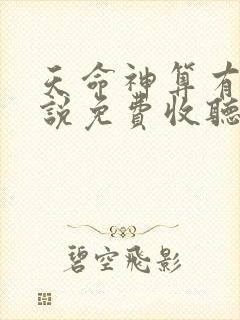 天命神算有
說免費收聽
碧空飛影